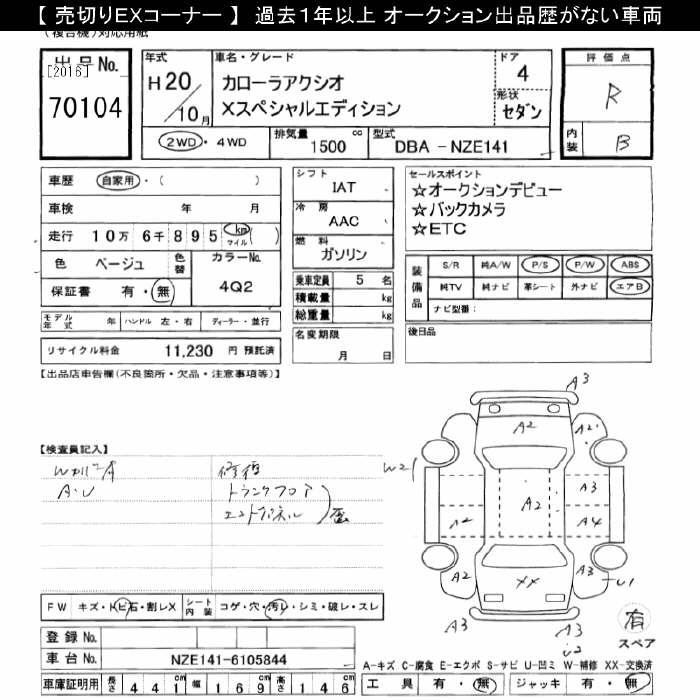 【 売切りEXコーナー 】 過去1年以上 オークション出品歴がない車両
(複合機)対応用紙
出品No.
[2016]
70104
年式
H20/10月
車名・グレード
カローラアクシオ
Xスペシャルエディション
ドア
4
形状
セダン
2WD・4WD
排気量 1500 cc
型式 DBA - NZE141
評価点
R
内装 B
車歴 自家用・( )
車検 年 月
走行 10万 6千 895 km マイル ( )
色 ベージュ
色替
カラーNo.
4Q2
保証書 有・無
モデル年式 年 ハンドル 左・右 ディーラー・並行
リサイクル料金 11,230 円 預託済
シフト
IAT
冷房
AAC
燃料
ガソリン
乗車定員 5 名
積載量 kg
総重量 kg
名変期限
月 日
セールスポイント
☆オークションデビュー
☆バックカメラ
☆ETC
装備品
S/R 純A/W P/S P/W ABS
純TV 純ナビ 革シート 外ナビ エアB
ナビ型番:
後日品
【出品店車告欄(不良箇所・欠品・注意事項等)】
【検査員記入】
A・U
修復
トランクフロア
エンドパネル
歴
A3
A2
A2
W2
A3
A2
A2
A4
A2
XX
A3
U1
A3
A3
有
スペア
FW キズ・トビ石・割レX シート内装 コゲ・穴・汚レ・シミ・破レ・スレ
登録No.
車台No. NZE141-6105844
車庫証明用 長さ 441 幅 169 高さ 146
A-キズ C-腐食 E-エクボ S-サビ U-凹ミ W-補修 XX-交換済
工具 有・無 ジャッキ 有・無